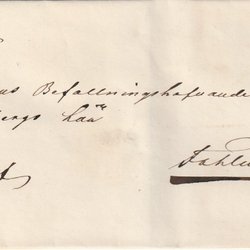 us Befallningshafvande
ergs län
Fahlu